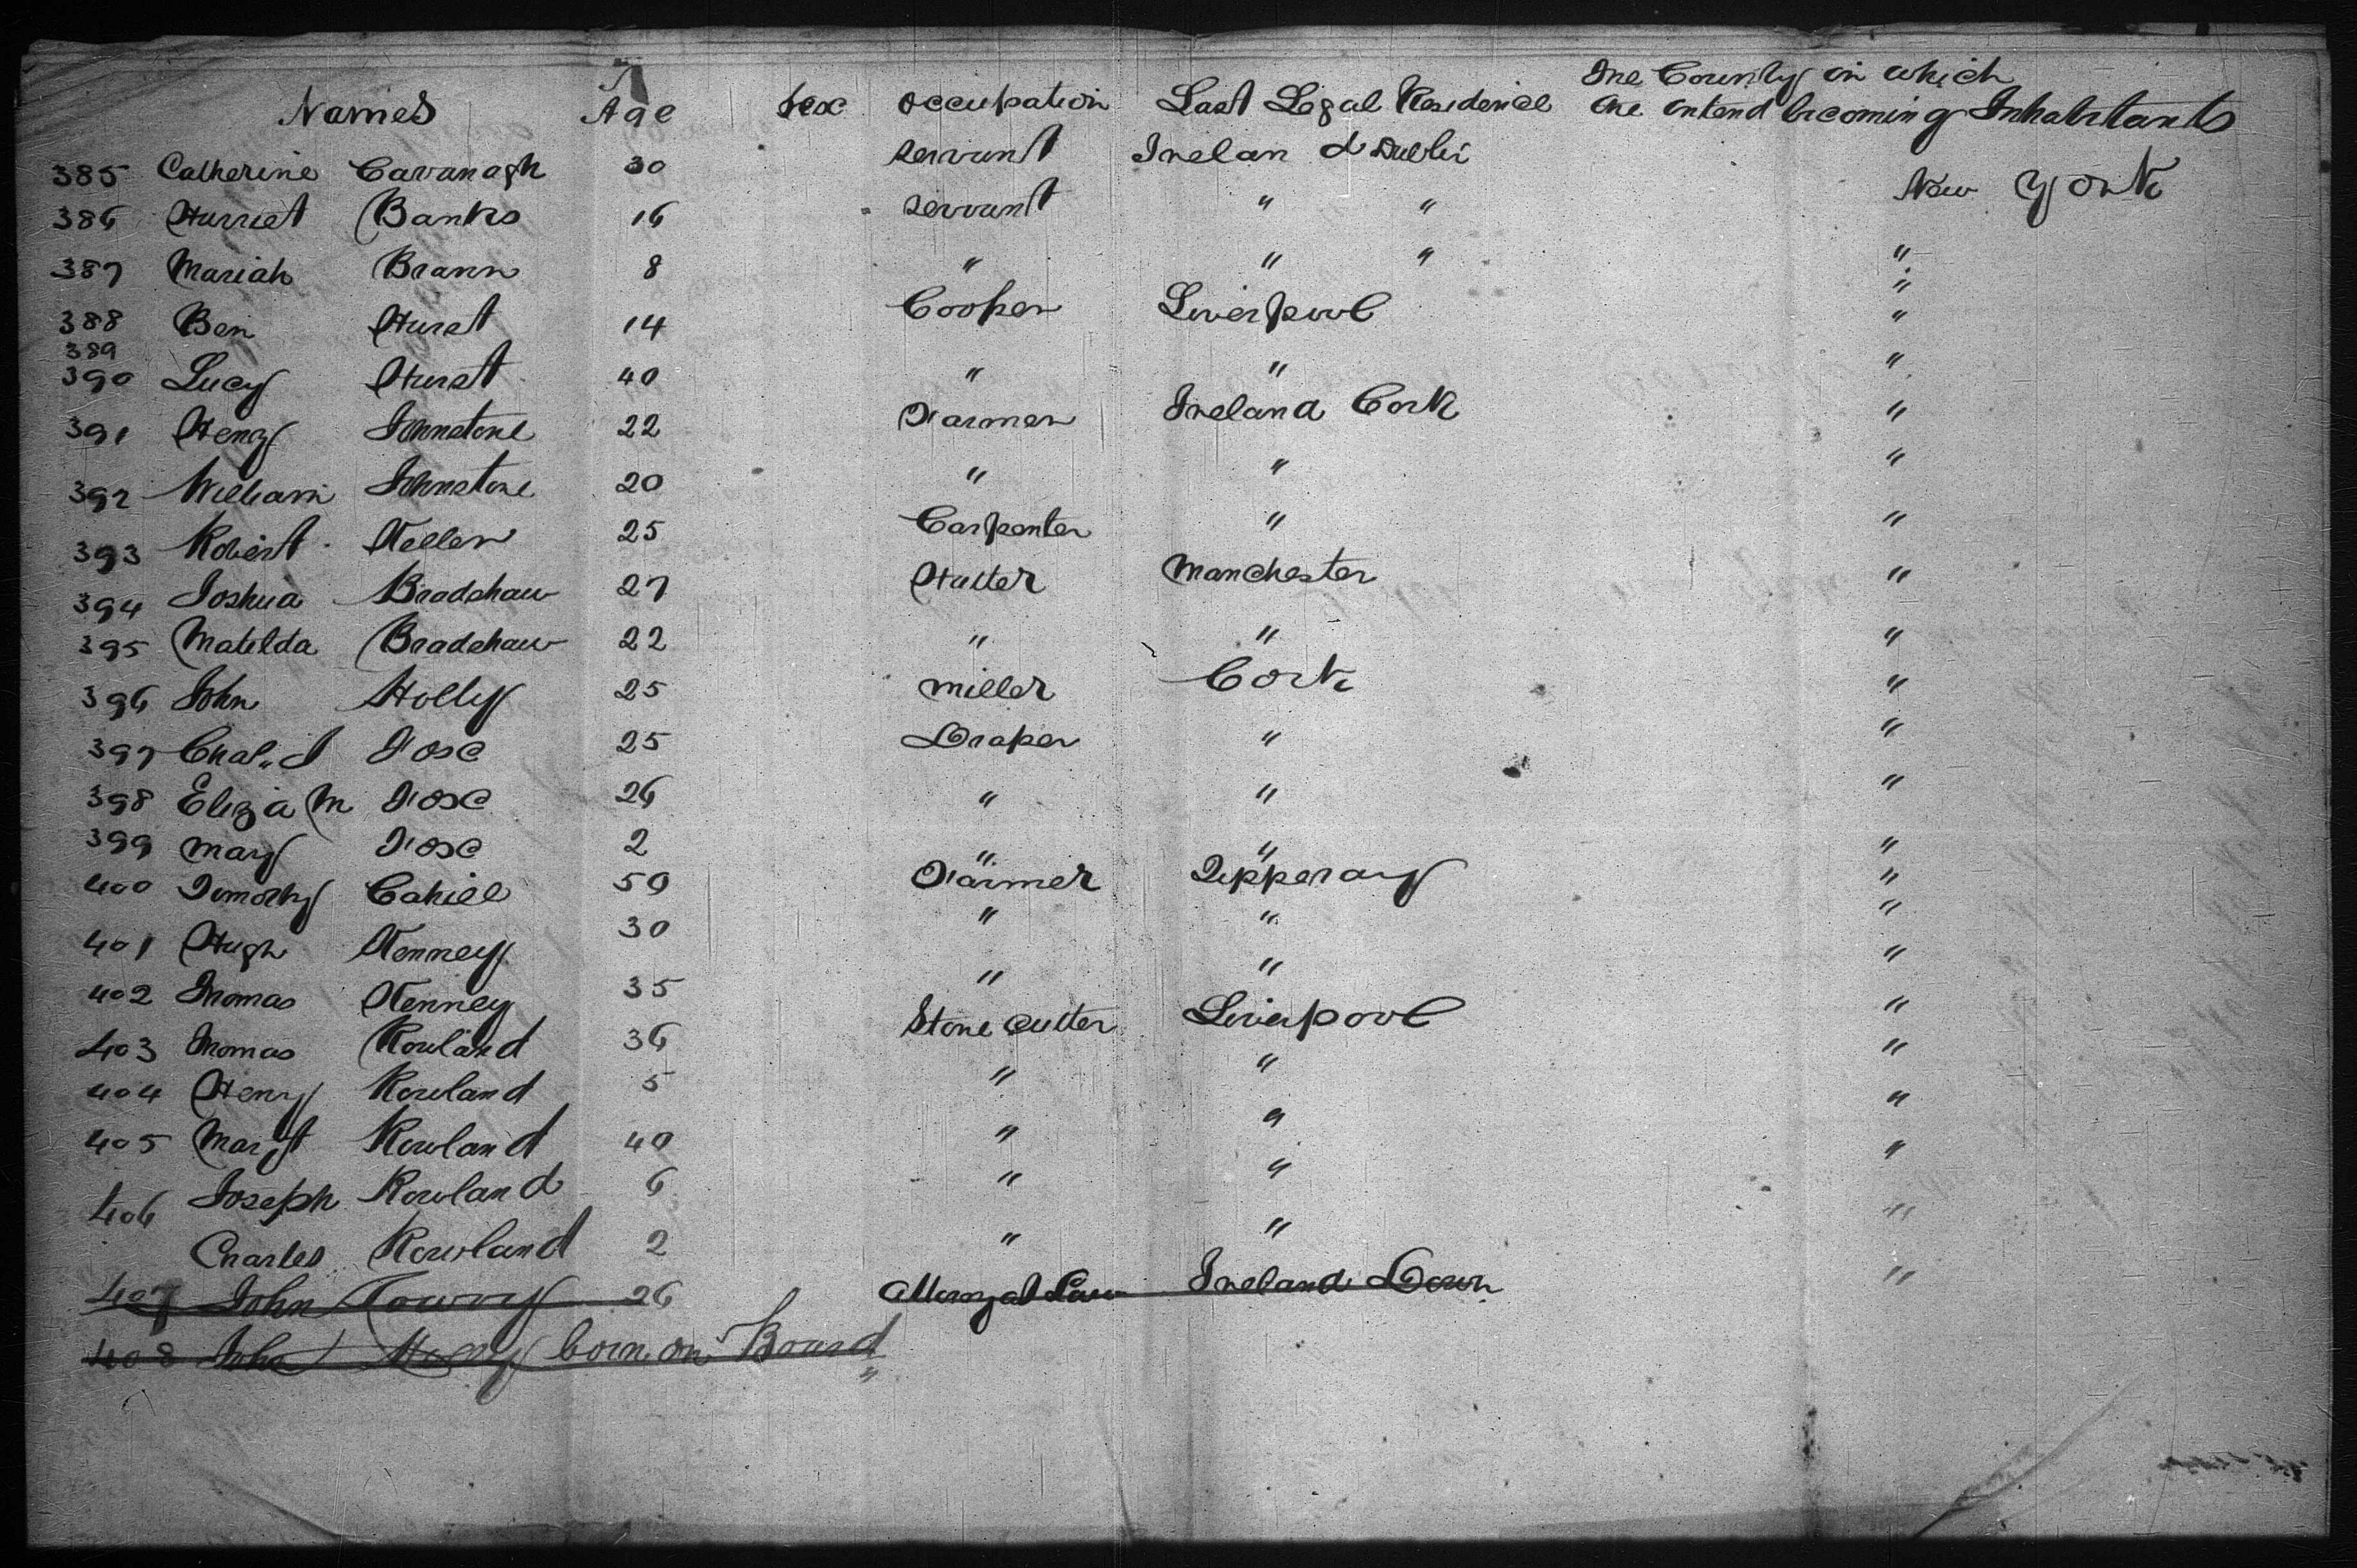 Names Age Sex occupation Last Legal Residence The County in which the intend becoming Inhabitants
385 Catherine Cavanagh 30 servant Ireland Dublin New York
386 Harriet Banks 16 servant " " "
387 Mariah Brann 8 " " " "
388 Ben Hurst 14 Cooper Liverpool "
389
390 Lucy Hurst 40 " " "
391 Henry Johnstone 22 Farmer Ireland Cork "
392 William Johnstone 20 " " "
393 Robert Keller 25 Carpenter " "
394 Joshua Bradshaw 27 Hatter Manchester "
395 Matilda Bradshaw 22 " " "
396 John Holly 25 miller Cork "
397 Chas. J Fosc 25 Draper " "
398 Eliza M Fosc 26 " " "
399 Mary Fosc 2 " " "
400 Timothy Cahill 50 Farmer Tipperary "
401 Hugh Kenney 30 " " "
402 Thomas Kenney 35 " " "
403 Thomas Rowland 36 Stone Cutter Liverpool "
404 Henry Rowland 5 " " "
405 Margt Rowland 40 " " "
406 Joseph Rowland 6 " " "
Charles Rowland 2 " " "
407 John 26 Attorny at Law Ireland Down "
408 John Holly born on Board "